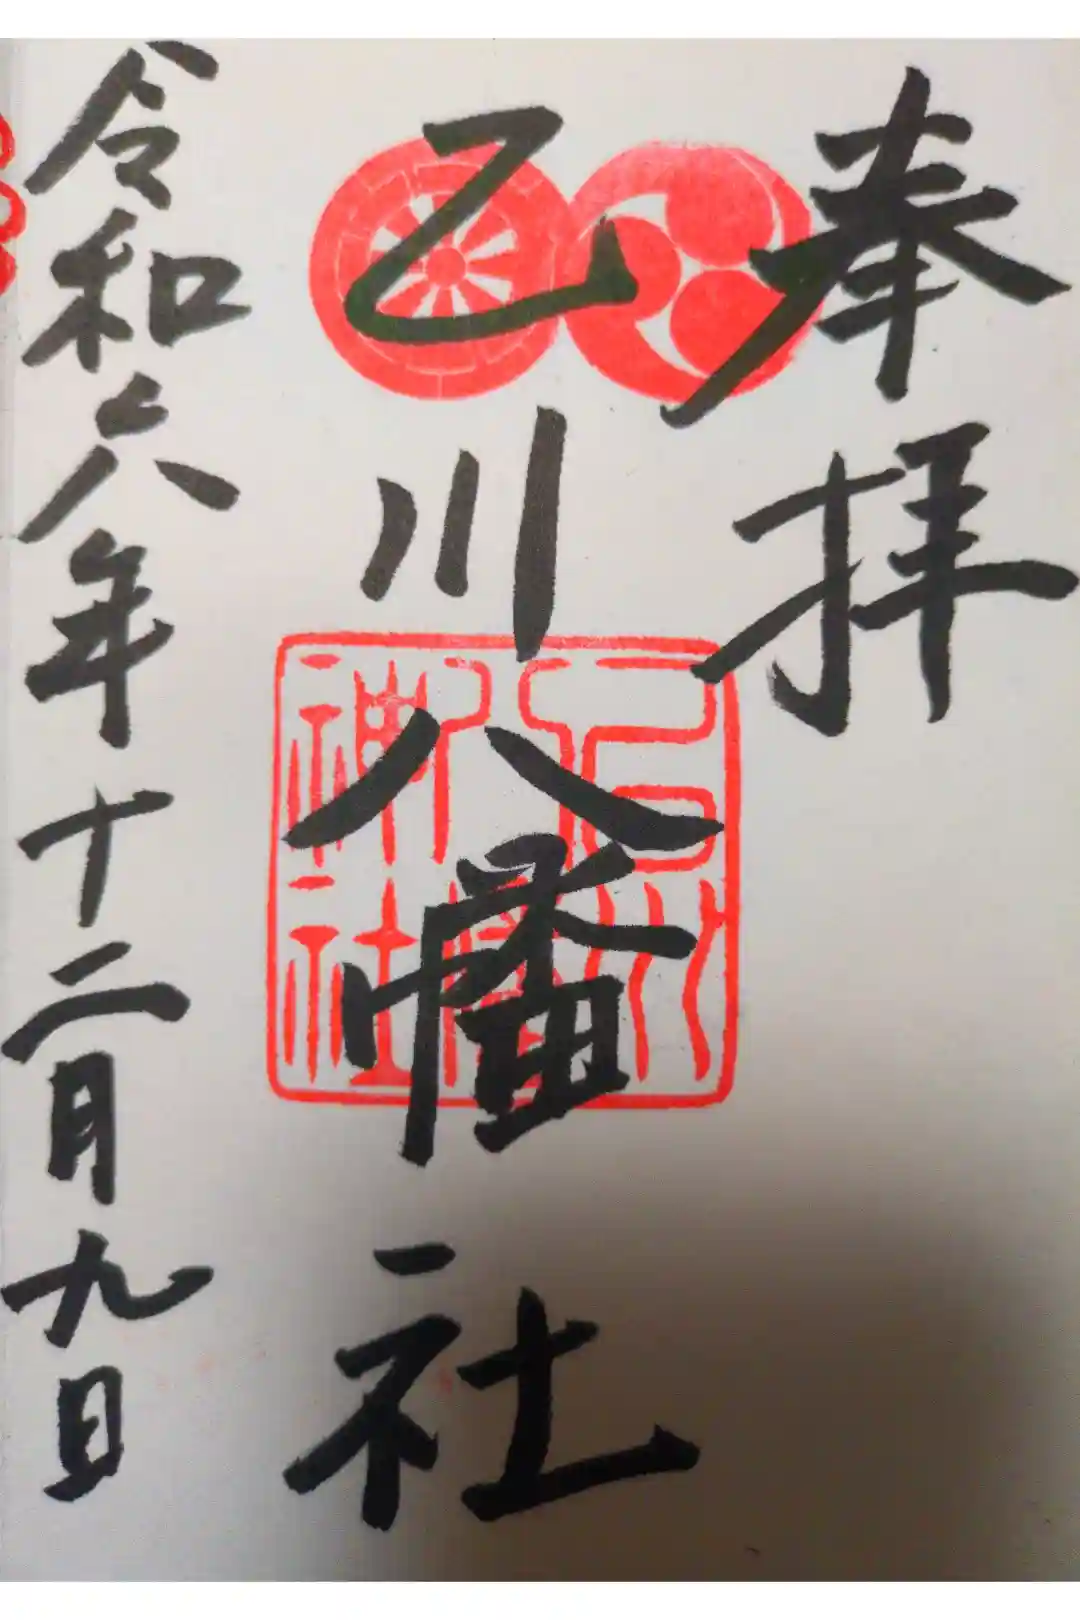 奉拝
乙川八幡社
令和六年十二月九日
乙川
八幡
神社